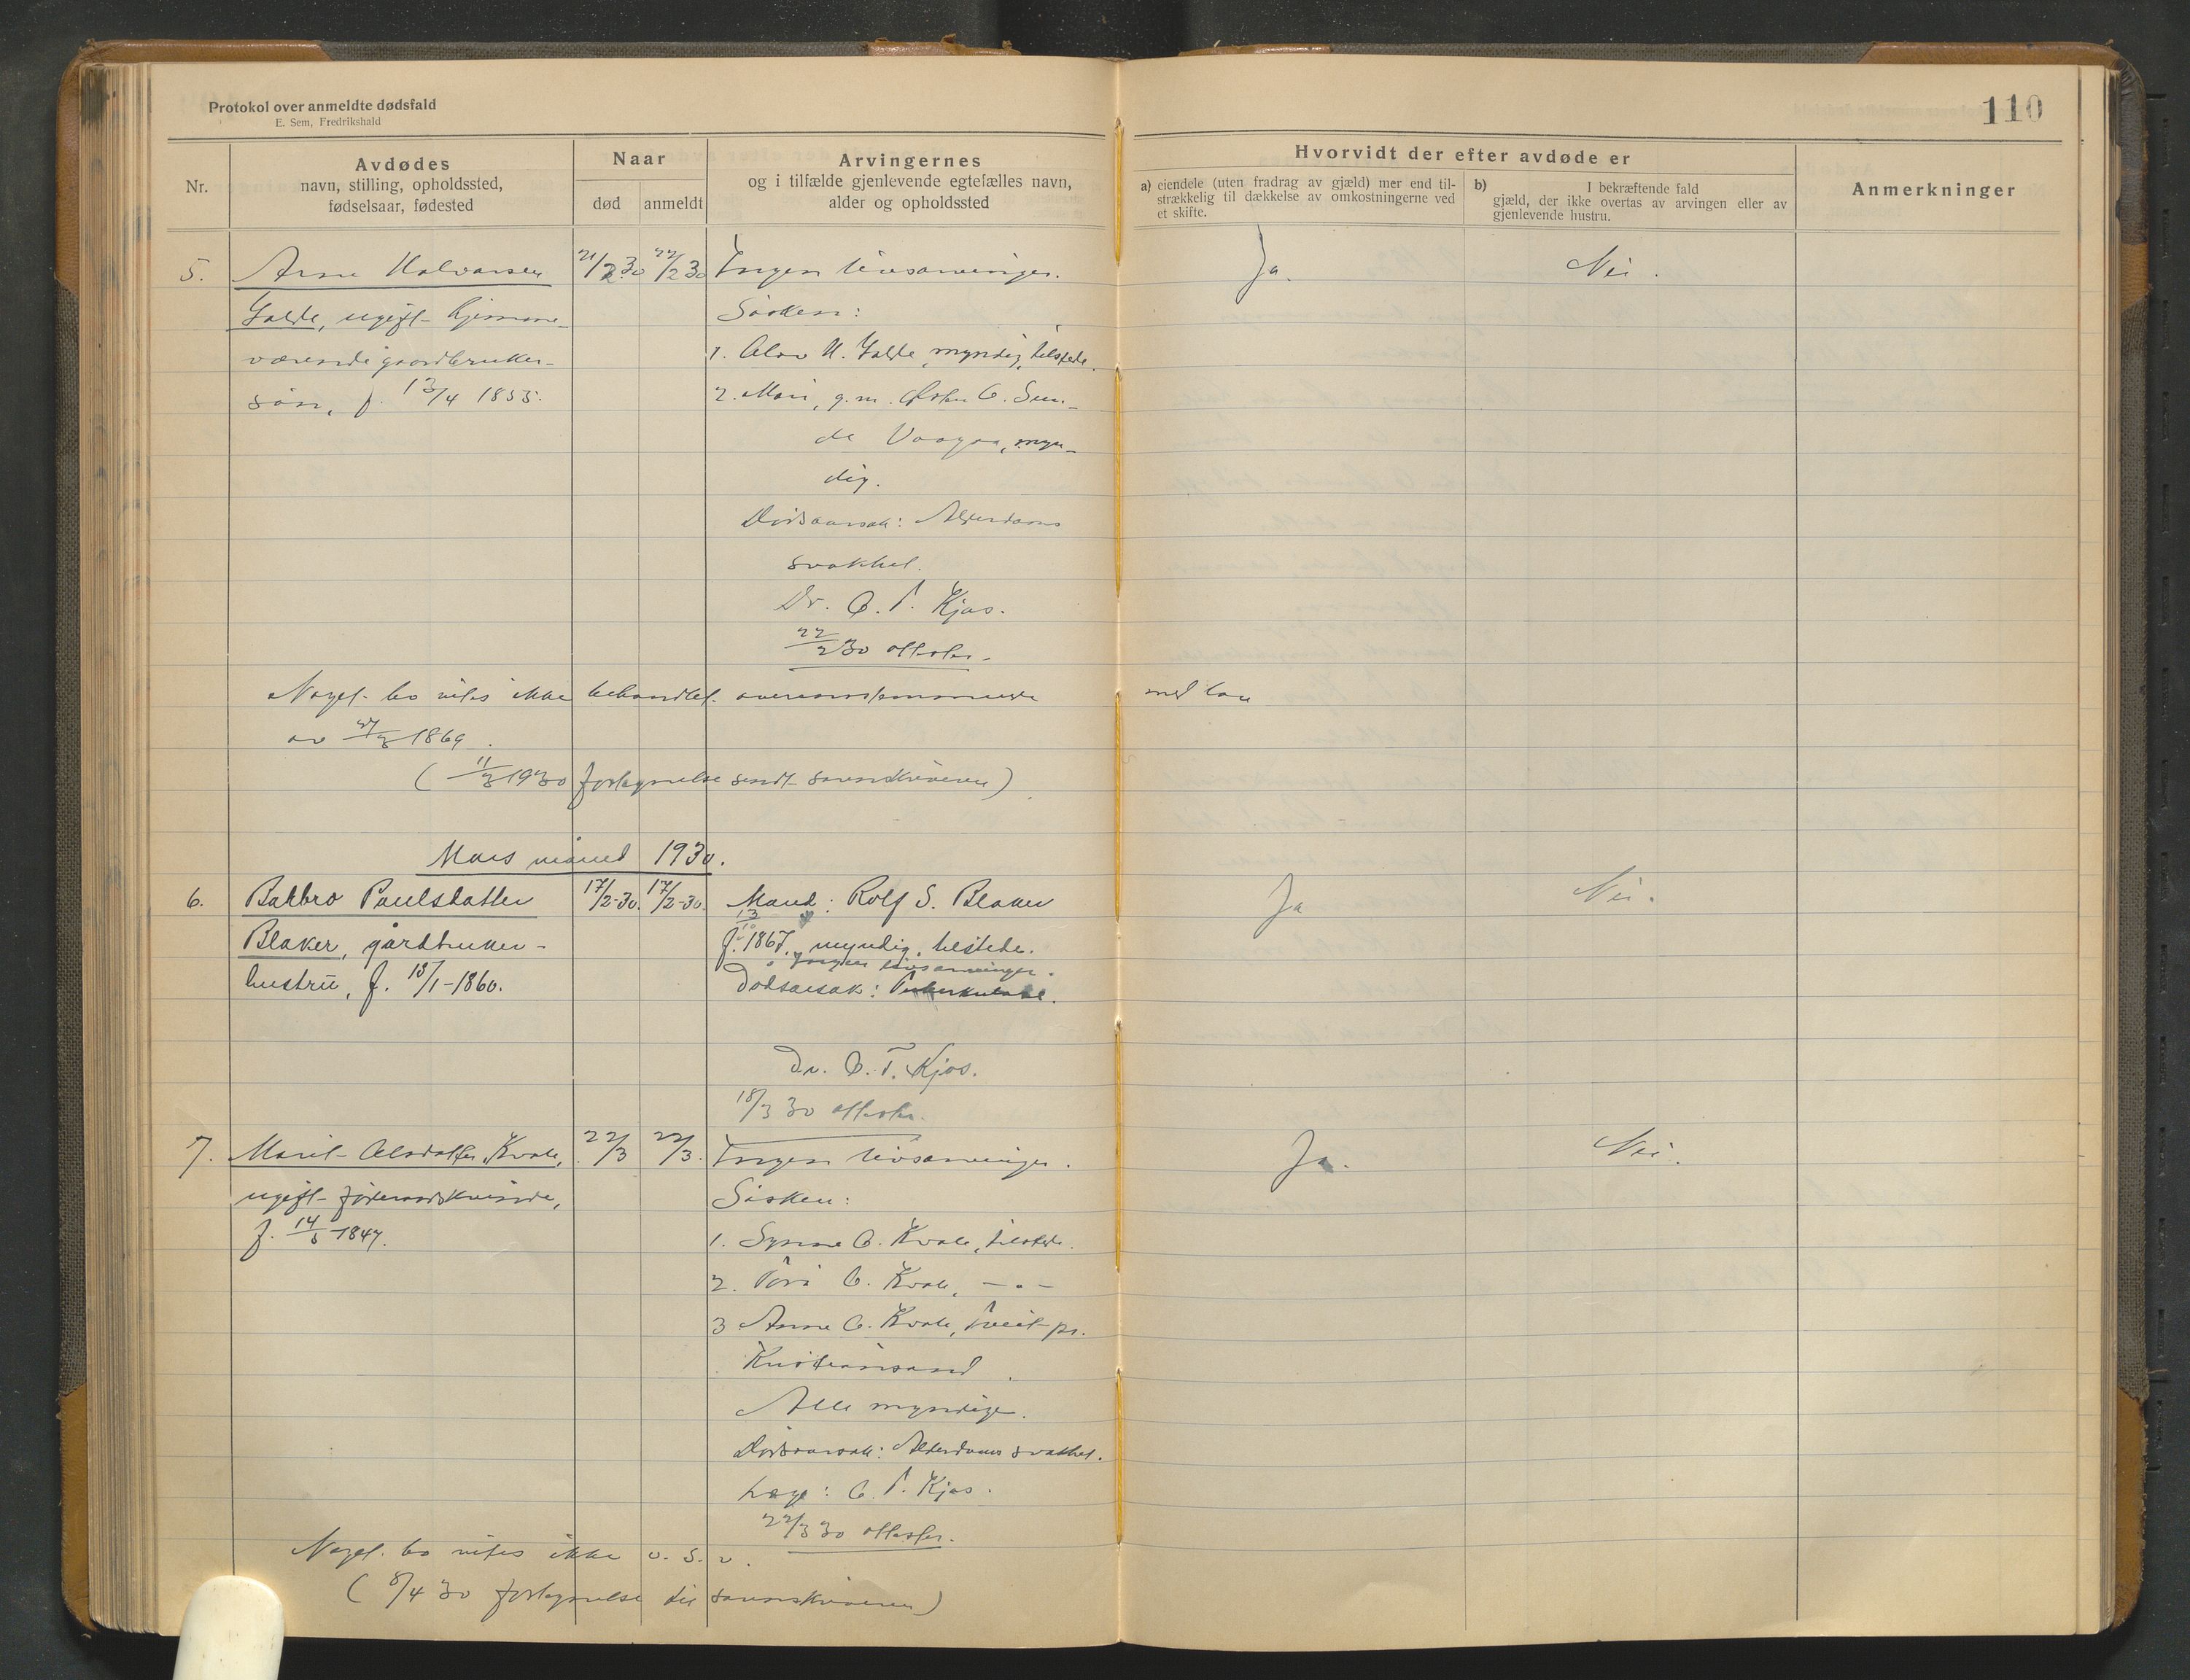 Protokol over anmeldte dødsfald
E. Sem, Fredrikshald
110
Nr.
Avdødes
navn, stilling, opholdssted,
fødselsaar, fødested
Naar
død
anmeldt
Arvingernes
og i tilfælde gjenlevende egtefælles navn,
alder og opholdssted
Hvorvidt der efter avdøde er
a) eiendele (uten fradrag av gjæld) mer end til-
strækkelig til dækkelse av omkostningerne ved
et skifte.
b) I bekræftende fald
gjæld, der ikke overtas av arvingen eller av
gjenlevende hustru.
Anmerkninger
5. Arne Halvorsen 21/2 30 22/2 30 Ingen livsarvinger. Ja. Nei.
ugift hjemme- Søsken:
værende gaardbruker- 1. Olav H. myndig, tilstede.
søn, f. 13/4 1855. 2. Mari, g.m. C. Sun-
de Vaagaa, myn-
dig.
Dødsaarsak: Alderdoms
svakhet.
Dr. O. T. Kjos.
22/2 30 attester.
bo vites ikke behandlet overensstemmende med lov
av 1869.
(11/3 1930 fortegnelse sendt sorenskriveren)
Mars måned 1930.
6. Barbro Paulsdatter 17/2-30. 17/2-30. Mand: Rolf S. Blaker Ja Nei.
Blaker, gårdbruker- f. 1867, myndig, tilstede.
hustru, f. 18/1-1860. Ingen livsarvinger.
Dødsårsak: Tuberkulose.
Dr. O. T. Kjos.
18/3 30 attester.
7. Marit Olsdatter Kvale, 22/3 22/3. Ingen livsarvinger. Ja. Nei.
ugift føderaadskvinde, Søsken:
f. 14/5 1847. 1. Synne O. Kvale, tilstede.
2. O. Kvale, -"-
3 Anne O. Kvale, Tveit pr.
Kristiansand.
Alle myndige.
Dødsaarsak: Alderdoms svakhet.
Læge: O. T. Kjos.
22/3 30 attester.
bo vites ikke o. s. v.
(8/4 30 fortegnelse til sorenskriveren)